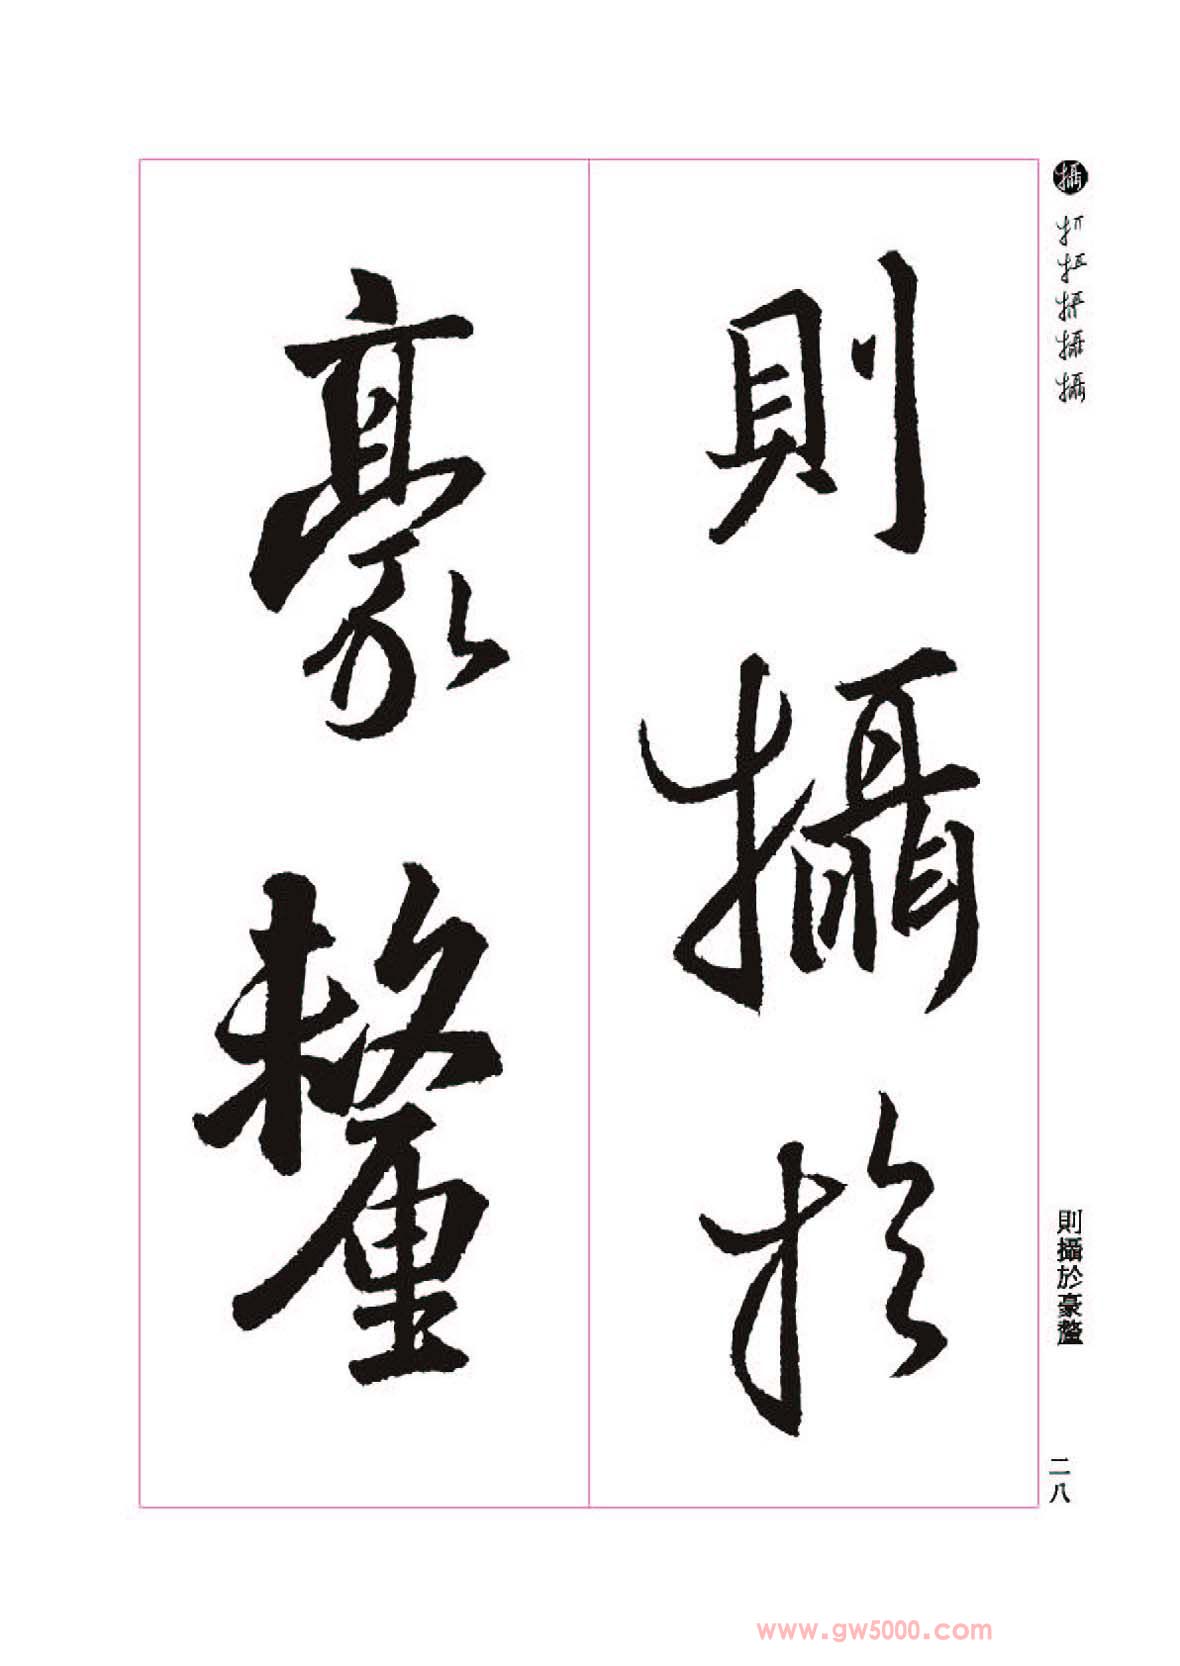 攝
則攝於豪釐
二八
則攝於
豪釐
www.gw5000.com